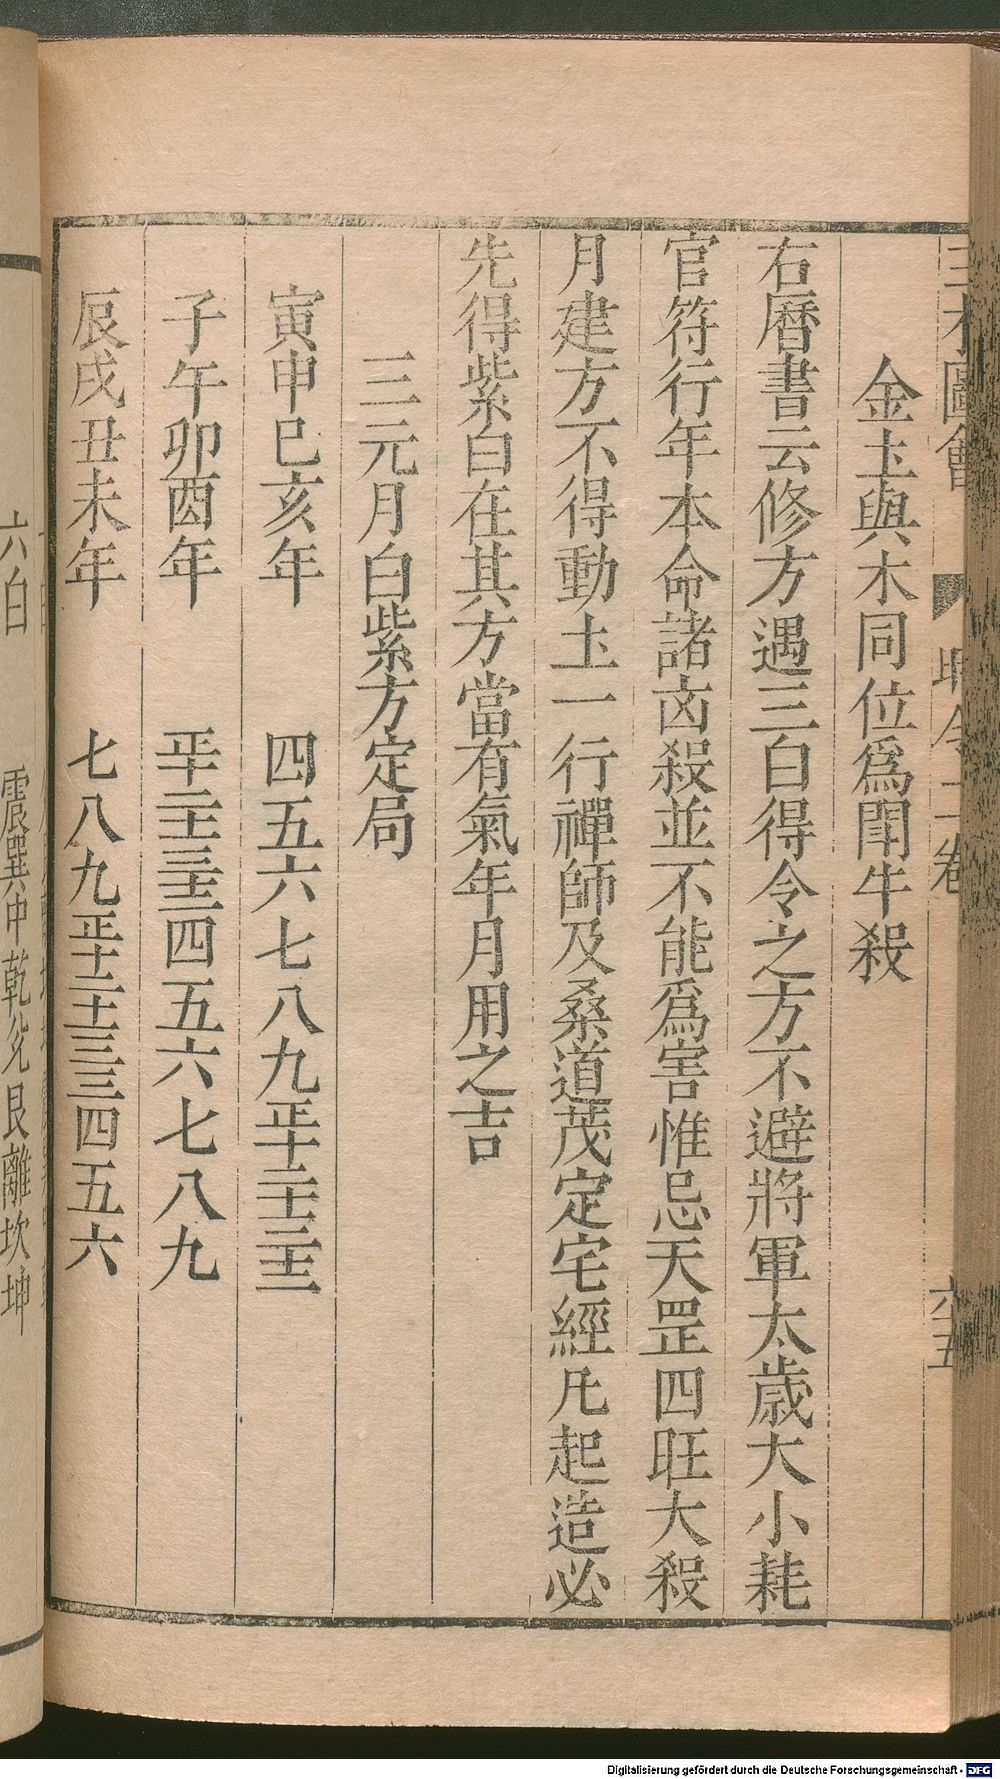 三才圖會 時令二卷 六五
金土與木同位爲鬥牛殺
右曆書云修方遇三白得令之方不避將軍太歲大小耗
官符行年本命諸凶殺並不能爲害惟忌天罡四旺大殺
月建方不得動土一行禪師及桑道茂定宅經凡起造必
先得紫白在其方當有氣年月用之吉
三元月白紫方定局
寅申巳亥年 四五六七八九正十二十二三
子午卯酉年 正十二十二三四五六七八九
辰戌丑未年 七八九正十二十二三四五六
六白 震巽中乾兌艮離坎坤
Digitalisierung gefördert durch die Deutsche Forschungsgemeinschaft - DFG